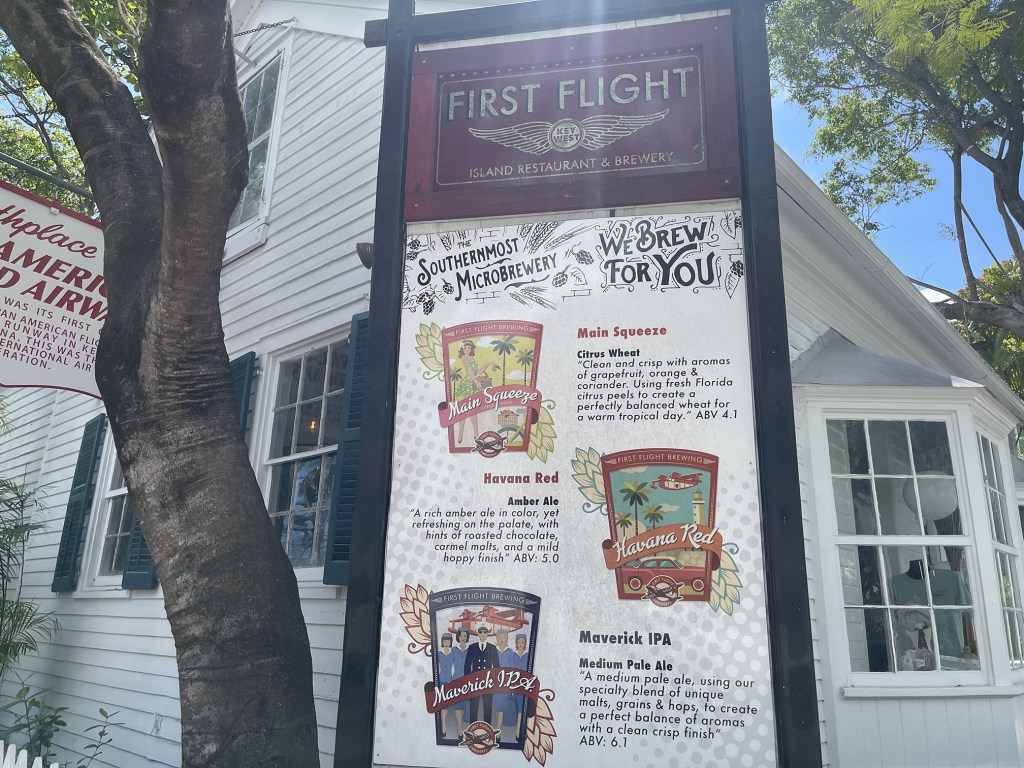 FIRST FLIGHT
KEY
WEST
ISLAND RESTAURANT & BREWERY
THE
SOUTHERNMOST
MICROBREWERY
WE BREW
FOR YOU
FIRST FLIGHT BREWING
Main Squeeze
Main Squeeze
Citrus Wheat
"Clean and crisp with aromas
of grapefruit, orange &
coriander. Using fresh Florida
citrus peels to create a
perfectly balanced wheat for
a warm tropical day." ABV 4.1
Havana Red
Amber Ale
"A rich amber ale in color, yet
refreshing on the palate, with
hints of roasted chocolate,
carmel malts, and a mild
hoppy finish" ABV: 5.0
FIRST FLIGHT BREWING
Havana Red
FIRST FLIGHT BREWING
Maverick I.P.A.
Maverick IPA
Medium Pale Ale
"A medium pale ale, using our
specialty blend of unique
malts, grains & hops, to create
a perfect balance of aromas
with a clean crisp finish"
ABV: 6.1
thplace
AMERIC
D AIRW
WAS ITS FIRST
AN AMERICAN FLIG
RUNWAY IN KE
NA. THIS WAS TH
ERNATIONAL AIR
ERATION.